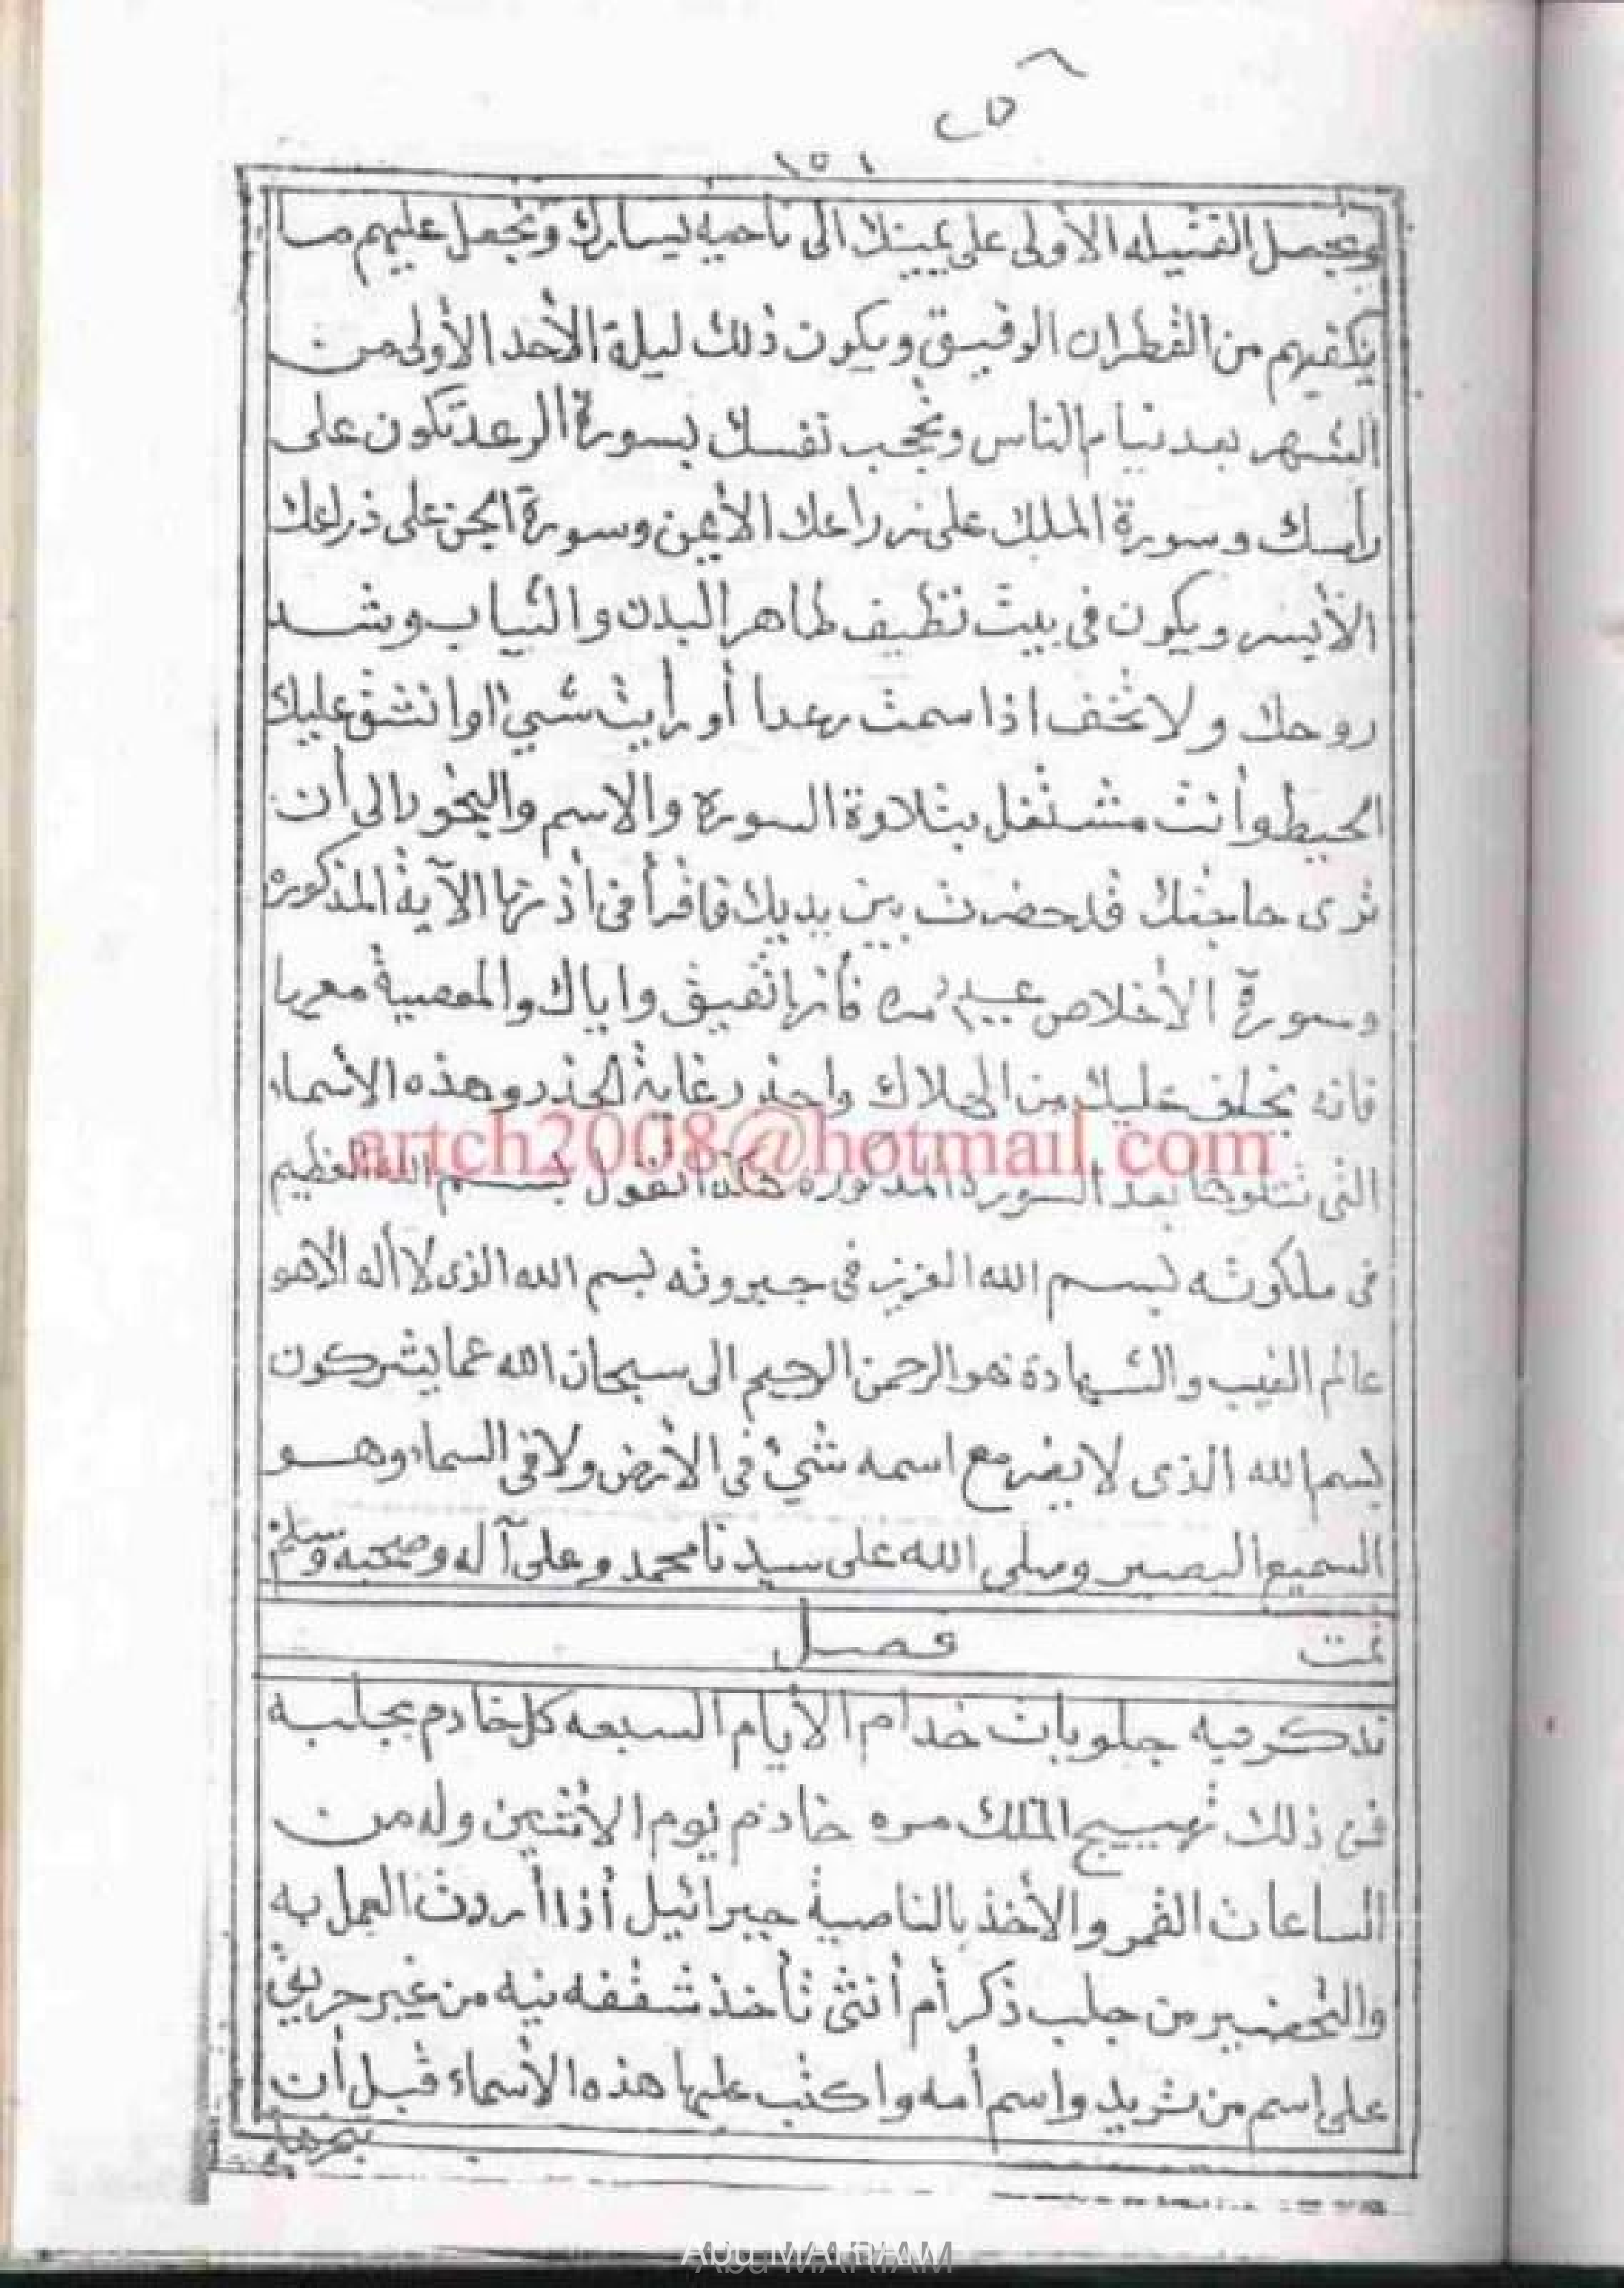 ١٥١
وتجعل الفتيله الأولى على يمينك الى ناحيه يسارك وتجعل عليهم ما
يكفيهم من القطران الرقيق ويكون ذلك ليلة الأحد الأولى من
الشهر بعد نيام الناس وتحجب نفسك بسورة الرعد تكون على
رأسك وسورة الملك على زراعك الأيمن وسورة الجن على ذراعك
الأيسر ويكون فى بيت نظيف طاهر البدن والثياب وشد
روحك ولا تخف اذا سمت رعدا أو رأيت شيئ او انشق عليك
الحيط وأنت مشتغل بتلاوة السوره والاسم والبخور الى أن
ترى حاجتك قد حضرت بين يديك فاقرأ فى أذنها الآية المذكورة
وسورة الأخلاص مره فأنها تفيق واياك والمعصية معها
فانه يخاف عليك من الهلاك واحذر غاية الحذر وهذه الأسماء
artch2008@hotmail.com
التى تتلوها بعد السورة المذكوره هكذا تقول بسم الله العظيم
فى ملكوته بسم الله العزيز فى جبروته بسم الله الذى لا أله الا هو
عالم الغيب والشهادة هو الرحمن الرحيم الى سبحان الله عما يشركون
بسم الله الذى لا يضر مع اسمه شيئ فى الأرض ولا فى السماء وهو
السميع البصير وصلى الله على سيدنا محمد وعلى آله وصحبه وسلم
تمت فصل
نذكر فيه جلوبات خدام الأيام السبعه كل خادم بجلبه
فمن ذلك تهييج الملك مره خادم يوم الأثنين وله من
الساعات القمر والأخذ بالناصية جبرائيل أذا أردت العمل به
والتحضير من جلب ذكر أم أنثى تأخذ شقفه نيه من غير حريق
على اسم من تريد واسم أمه واكتب عليها هذه الأسماء قبل أن
Abu MARIAM